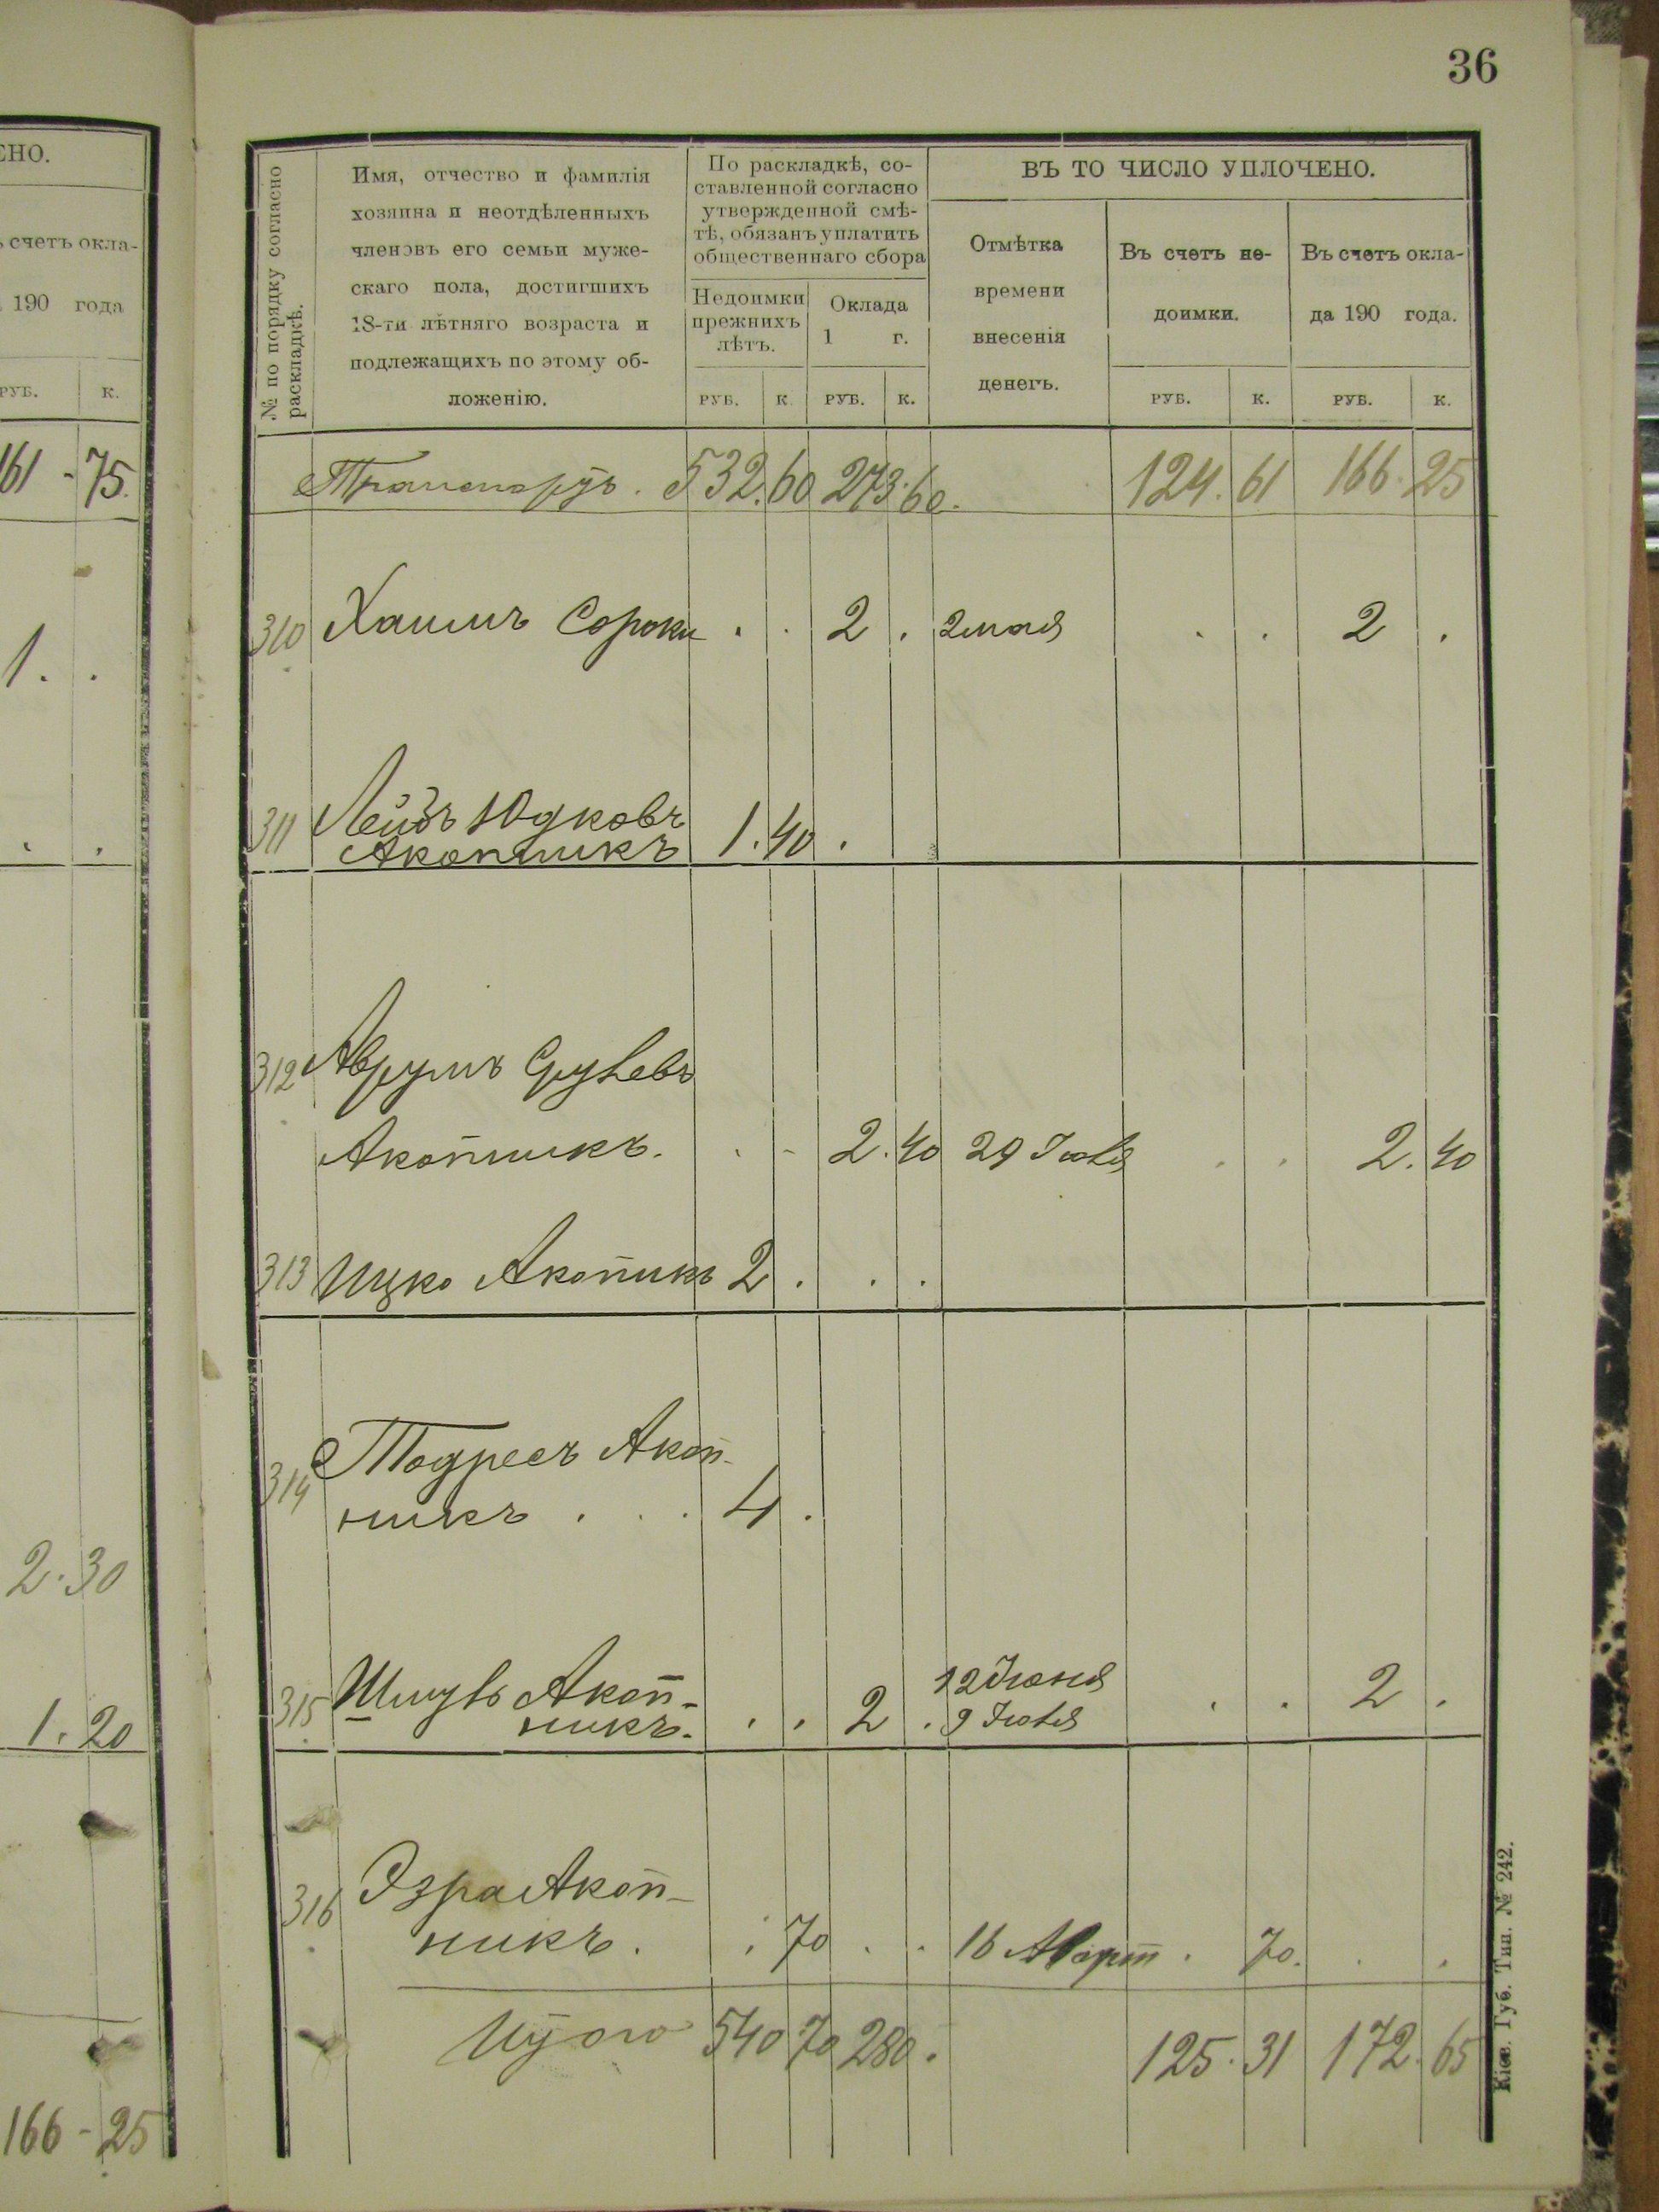 ЕНО.
ъ счетъ окла-
190 года
РУБ. К.
161 - 75.
1. .
. .
2. 30
1. 20
166 - 25
36
№ по порядку согласно
раскладкѣ.
Имя, отчество и фамилія
хозяина и неотдѣленныхъ
членовъ его семьи муже-
скаго пола, достигшихъ
18-ти лѣтняго возраста и
подлежащихъ по этому об-
ложенію.
По раскладкѣ, со-
ставленной согласно
утвержденной смѣ-
тѣ, обязанъ уплатить
общественнаго сбора
Недоимки
прежнихъ
лѣтъ.
Оклада
1 г.
РУБ. К. РУБ. К.
ВЪ ТО ЧИСЛО УПЛОЧЕНО.
Отмѣтка
времени
внесенія
денегъ.
Въ счетъ не-
доимки.
Въ счетъ окла-
да 190 года.
РУБ. К. РУБ. К.
Транспортъ. 532. 60 273. 60. 124. 61 166. 25
310 Хаимъ Сороки . . 2 . 2 мая . . 2 .
311 Лейбъ Юдковъ
Акопникъ 1. 40 .
312 Аврумъ Срулевъ
Акопникъ. . - 2. 40 29 Іюля . . 2. 40
313 Ицко Акопникъ 2 . . .
314 Тодресъ Акоп-
никъ . . . 4 .
315 Шмуль Акоп-
никъ. . . 2 . 12 Іюня . . 2 .
9 Іюля
316 Эзра Акоп-
никъ. . 70 . . 16 Март . 70. . .
Итого 540 70 280. 125. 31 172. 65
Кіев. Губ. Тип. № 242.